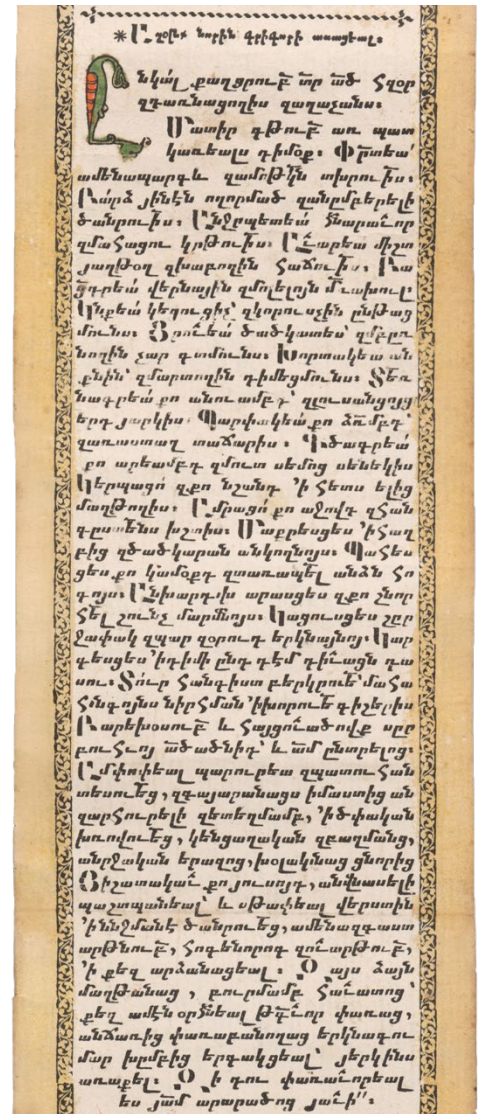 * Աղօթք նորին Գրիգորի ասացեալ։
Ընկալ քաղցրութբ տր ած հզօր
զդառնացողիս զաղաչանս։
Մատիր գթութբ առ պատ
կառեալս դիմօք։ Փրտեա՛
ամենապարգև զամօթկն տխրուիս։
Բարձ յինէն ողորմած զանբրբերելի
ծանրուիս։ Անջրպետեա՛ հնարաւոր
զմահացու կրթուիս։ Աւարեա միշտ
յաղթօղ զխաբողին հաճուիս։ Բա
ցդրեա՛ վերնային զմոլելոյն մառախուլ։
Կնքեա՛ կեցուցիչ՝ զկորուսչին ընթաց
մունս։ Ցրուեա՛ ծածկատես՝ զմբռ
նողին չար գտմունս։ Խորտակեա ան
քնին՝ զմարտողին դիմեցմունս։ Տեռ
նագրեա՛ քո անուամբդ՝ զլուսանցոյց
երդ յարկիս։ Պարփակեա՛ քո ձռմբդ՝
զառաստաղ տաճարիս։ Գծագրեա՛
քո արեամբդ զմուտ սեմոց սենեկիս
Կերպացո՛ զքո նշանդ ՚ի հետս ելից
մաղթողիս։ Ամրացո՛ քո աջովդ զհան
գըստենս խշտիս։ Մաքրեսցես ՚ի հաղ
բից զծածկարան անկողնոյս։ Պահես
ցես քո կամօքդ զտառապել անձն հո
գոյս։ Անխարդախ արասցես զքո շնոր
հել շունչ մարմնոյս։ Կացուսցես շըր
ջափակ զպար զօրուդ երկնայնոյ։ Կար
գեսցես ՚իդիմի ընդ դէմ դիւացն դա
սու։ Տուր հանգիստ բերկրուե՝ մահա
հանգոյնս նիրհման ՚իխորուե գիշերիս
Բարեխօսութբ և հայցուածովք սրբ
բուհւոյ ածածնիդ՝ և ամ ընտրելոց։
Ամփոփեալ պարուրեա զպատուհան
տեսուեց, զգայարանացս իմաստից ան
զարհուրելի զետեղմամբ, ՚իծփական
խռովուեց, կենցաղական զբաղմանց,
անրջական երազոց, խօլականաց ցնորից
Յիշատակաւ քո յուսոյդ, անվնասելի
պաշտպանեալ՝ և սթափեալ վերստին
՚ինընջմանէ ծանրուեց, ամենազգաստ
արթնութբ, հոգենորոգ զուարթութբ,
՚ի քեզ արձանացեալ։ Զայս ձայն
մաղթանաց, բուրմամբ հաւատոց՝
քեզ ամէնօրհնեալ թգւոր փառաց,
անճառից փառաբանողաց երկնագու
մար խըմբից երգակցեալ՝ յերկինս
առաքել։ Զի դու փառաւորեալ
ես յամ արարածոց յաւի՛՛։